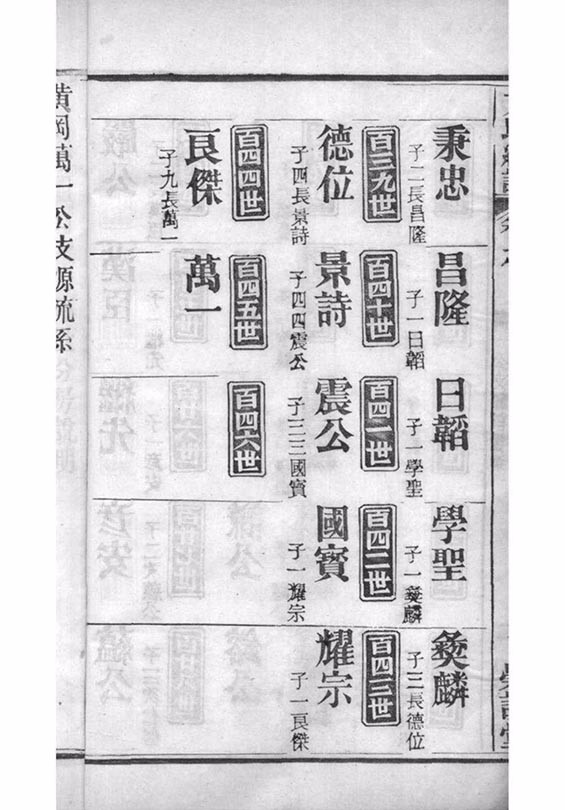 秉忠
子二長昌隆
昌隆
子一日韜
日韜
子一學聖
學聖
子一彝麟
彝麟
子三長德位
百三九世
百四十世
百四一世
百四二世
百四三世
德位
子四長景詩
景詩
子四四震公
震公
子三三國賓
國賓
子一耀宗
耀宗
子一良傑
百四四世
百四五世
百四六世
良傑
子九長萬一
萬一
黃岡萬一公支源流系